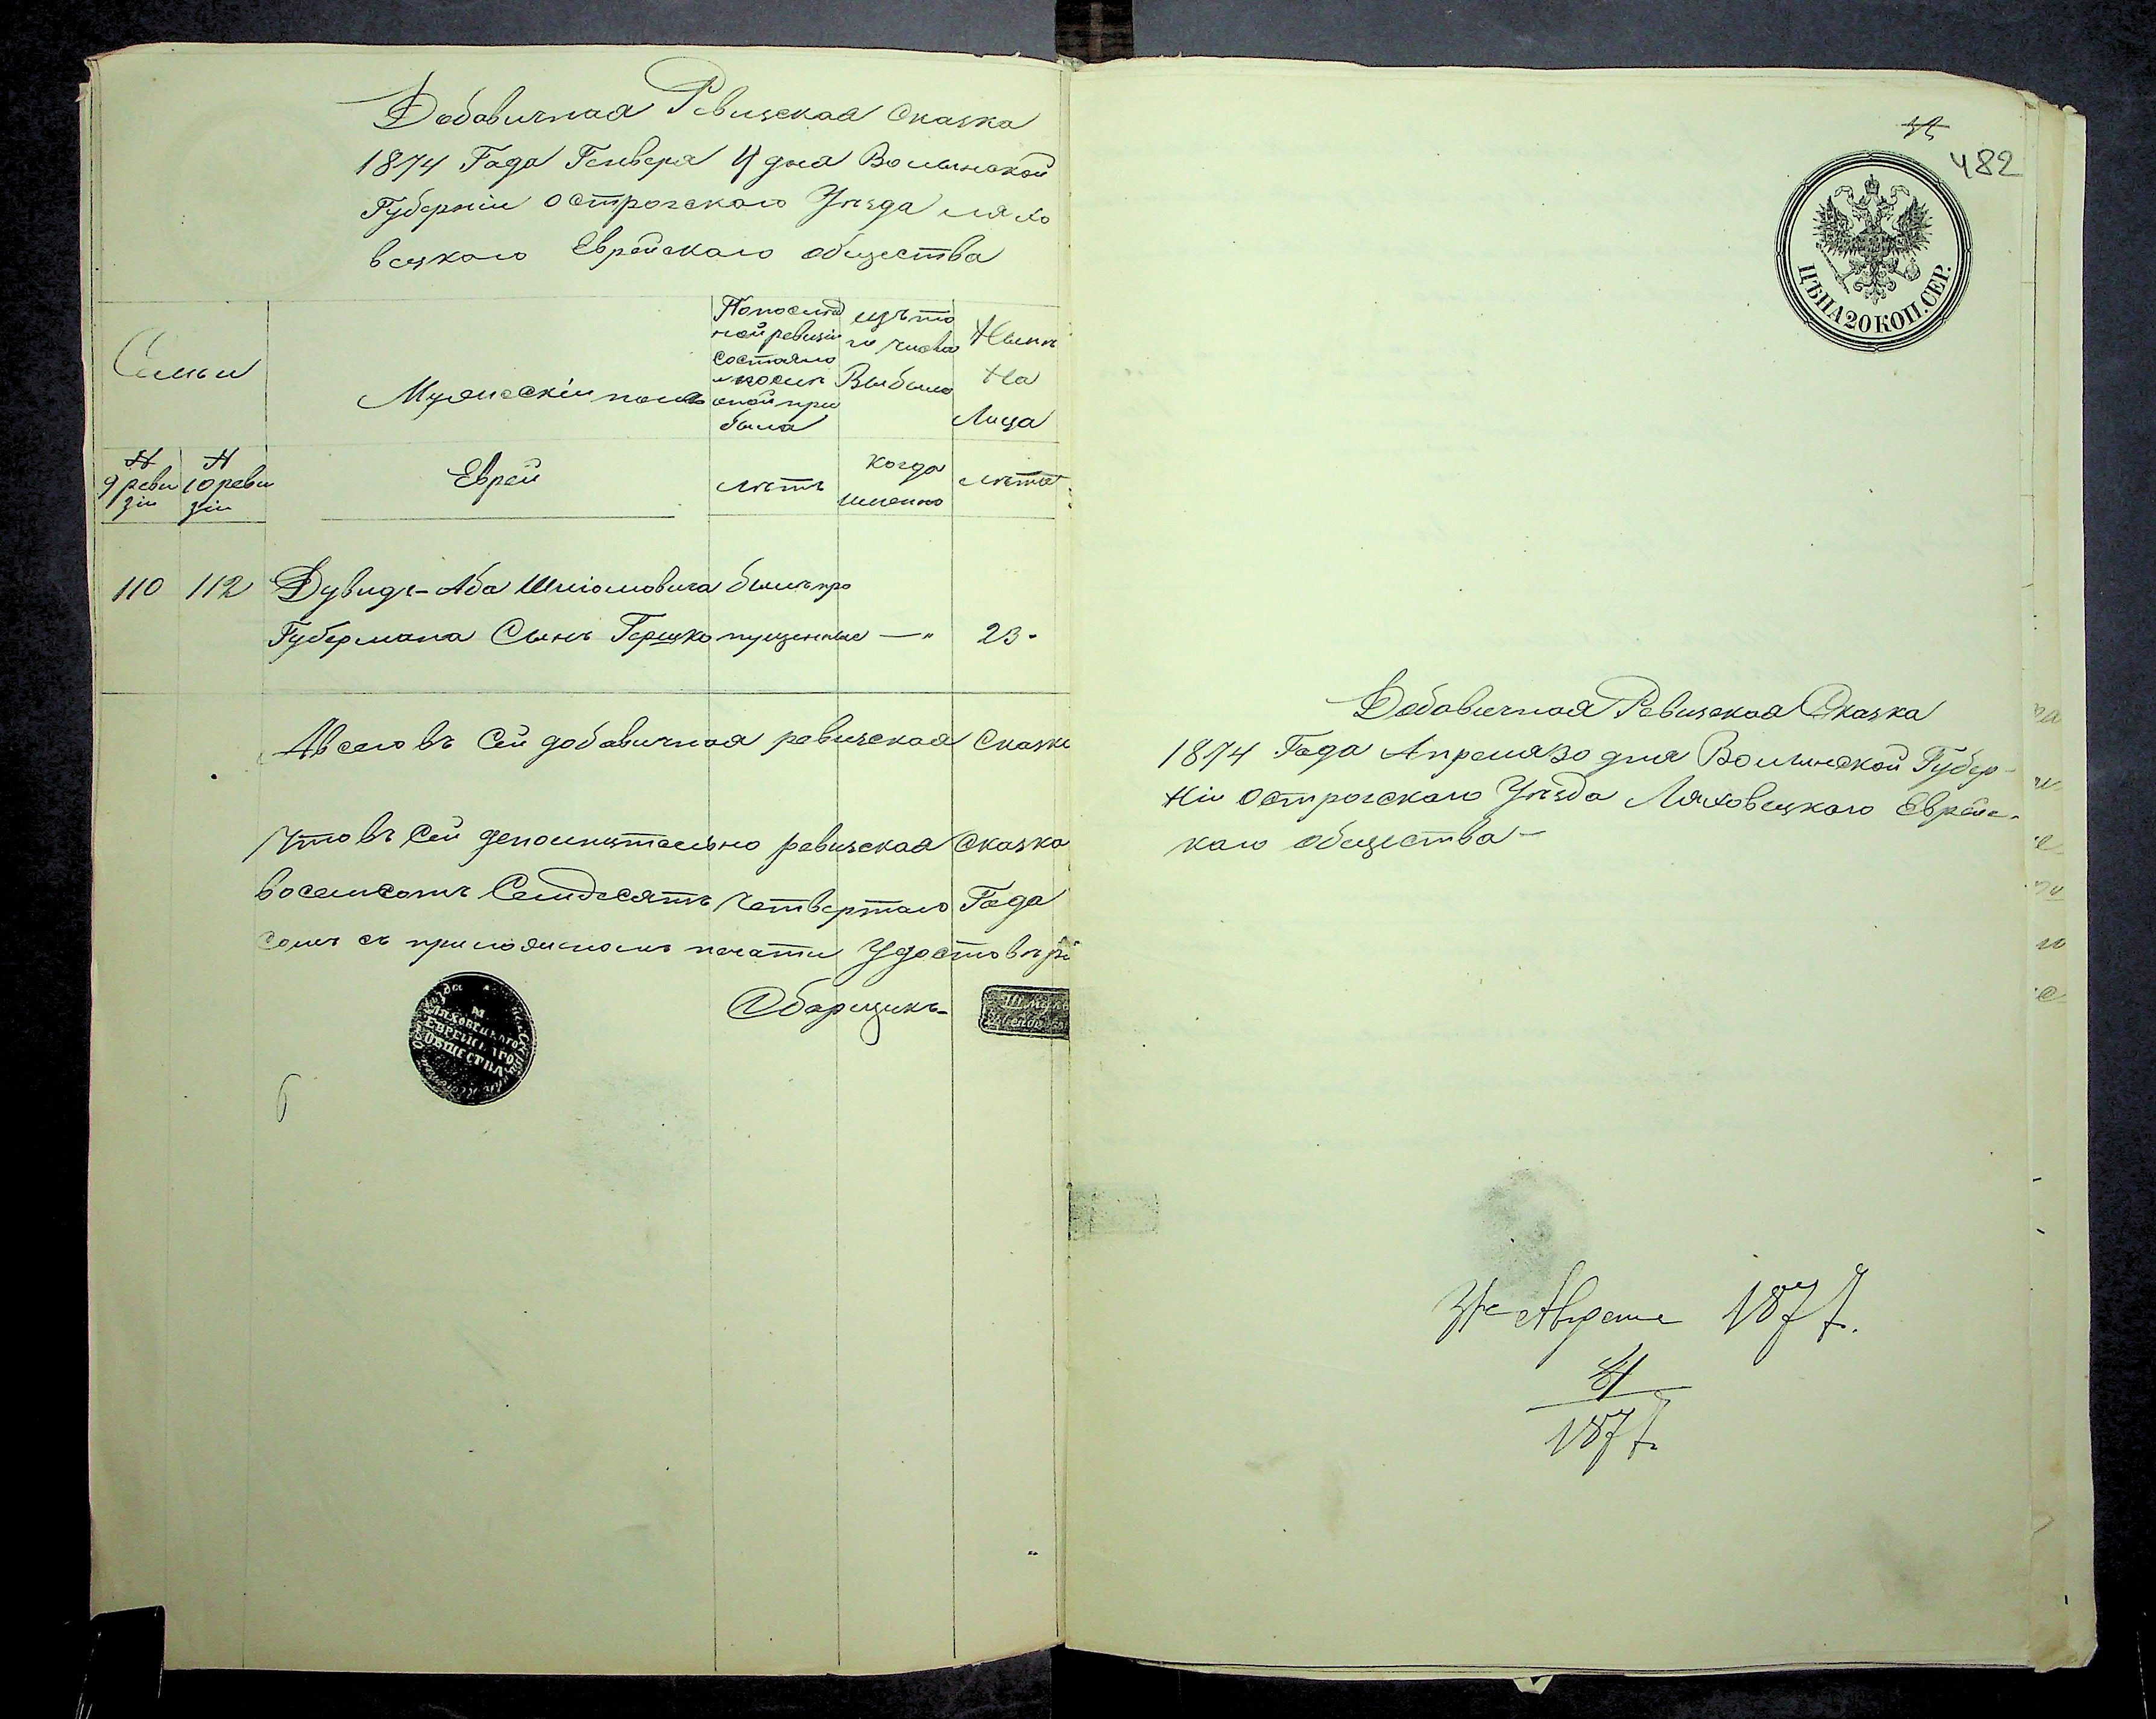 Добавичная Ревизская Сказка
1874 Года Генвера 4 дня Волынской
Губерніи Острогскаго Уѣзда Ляхо
вецкаго Еврейскаго общества
Семьи
Мужескій полъ
По послѣд
ней ревизіи
состаяло
и после
оной при
была
изъ то
го числа
Выбыло
Нынѣ
На
Лицо
№
9 реви
зіи
№
10 реви
зіи
Еврей
лѣтъ
когда
именно
лѣта
110 112 Дувидъ-Аба Шліомовича былъ про
Губермана Сынъ Гершко пущенные —" 23.
А всего въ Сей добавичная ревизская Сказке
Что въ Сей дополнительно ревизская Сказка
восемсотъ Семдесятъ Четвертаго Года
съ приложеномъ печати Удостовері
Ляховецкаго
Еврейскаго
Общества
Сборщикъ-
482
ЦѢНА 20 КОП. СЕР.
Добавичная Ревизская Сказка
1874 Года Апреля 30 дня Волынской Губер-
ніи Острогскаго Уѣзда Ляховецкаго Еврейс-
каго общества—
1877.
1877.